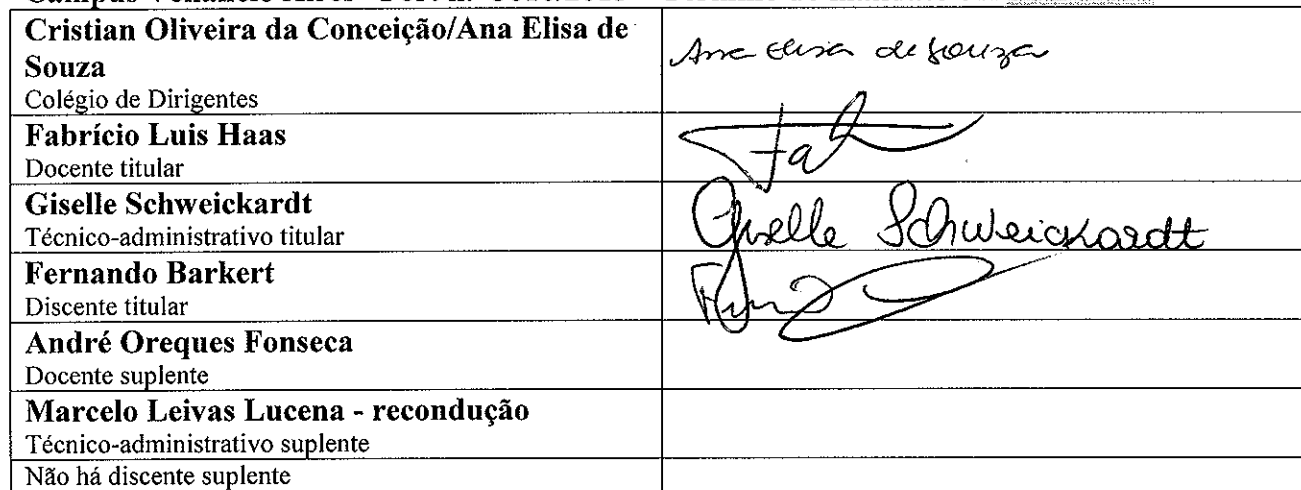 Cristian Oliveira da Conceição/Ana Elisa de
Souza
Colégio de Dirigentes
Ana Elisa de Souza
Fabrício Luis Haas
Docente titular
Giselle Schweickardt
Técnico-administrativo titular
Giselle Schweickardt
Fernando Barkert
Discente titular
André Oreques Fonseca
Docente suplente
Marcelo Leivas Lucena - recondução
Técnico-administrativo suplente
Não há discente suplente